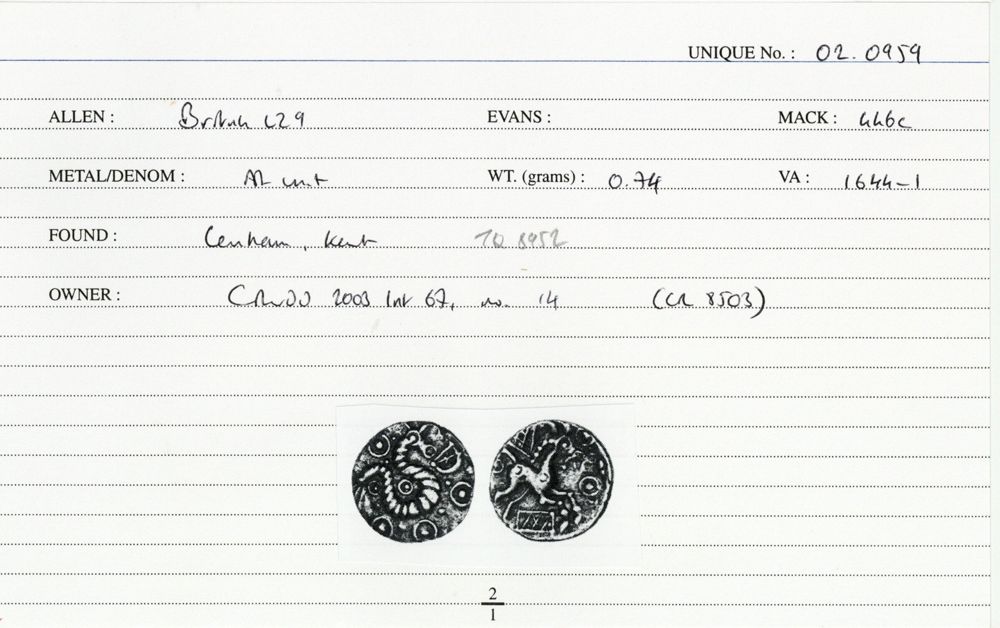 UNIQUE No. : 02.0959
ALLEN : British L29 EVANS : MACK : 446c
METAL/DENOM : AR unit WT. (grams) : 0.74 VA : 1644-1
FOUND : Lenham, Kent TQ 8952
OWNER : 2003 list 67, no. 14 (CR 8503)
2
1